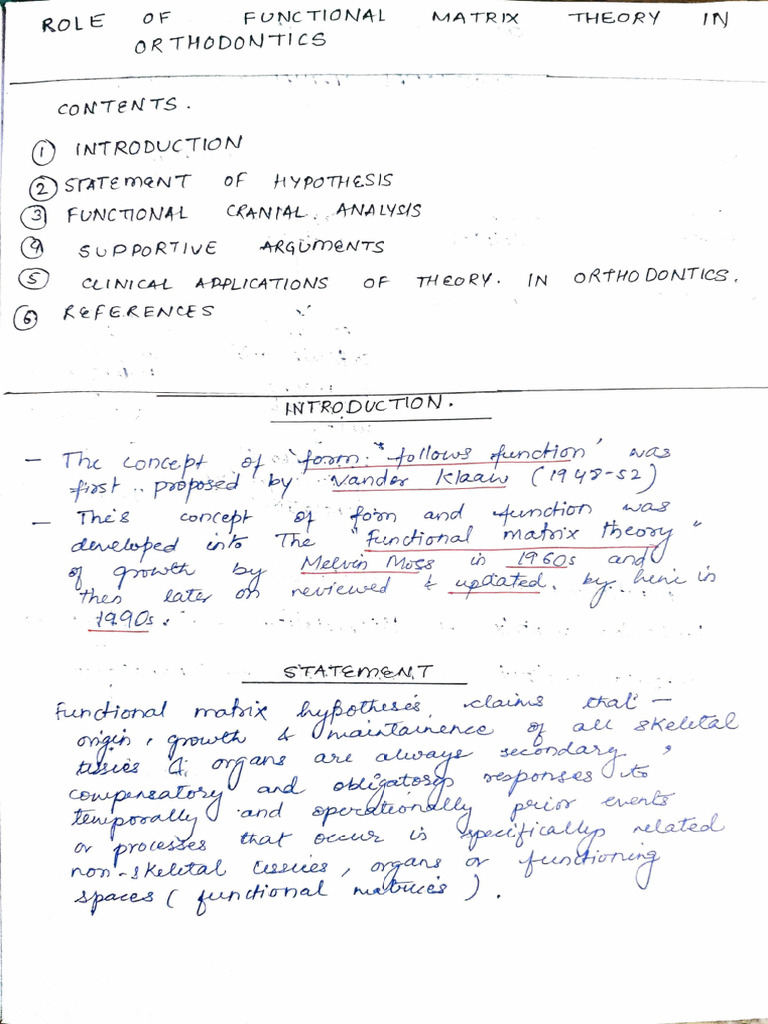 ROLE OF FUNCTIONAL MATRIX THEORY IN
ORTHODONTICS
CONTENTS.
① INTRODUCTION
② STATEMENT OF HYPOTHESIS
③ FUNCTIONAL CRANIAL ANALYSIS
④ SUPPORTIVE ARGUMENTS
⑤ CLINICAL APPLICATIONS OF THEORY. IN ORTHODONTICS.
⑥ REFERENCES
INTRODUCTION.
- The concept of "form" follows function' was
first proposed by Vander Klaaw (1948-52)
- The's concept of form and function was
developed into The "Functional matrix theory"
of growth by Melvin Moss in 1960s and
then later on reviewed & updated. by heni in
1990s.
STATEMENT
Functional matrix hypothesis, claims that -
origin, growth & maintainence of all skeletal
tissues & organs are always secondary,
compensatory and obligatory responses to
temporally and operationally prior events
or processes that occur in specifically related
non-skeletal tissues, organs or functioning
spaces (functional matrices).